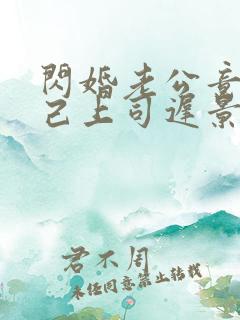 閃婚老公竟
己上司遲景
君不周
未經同意禁止轉載